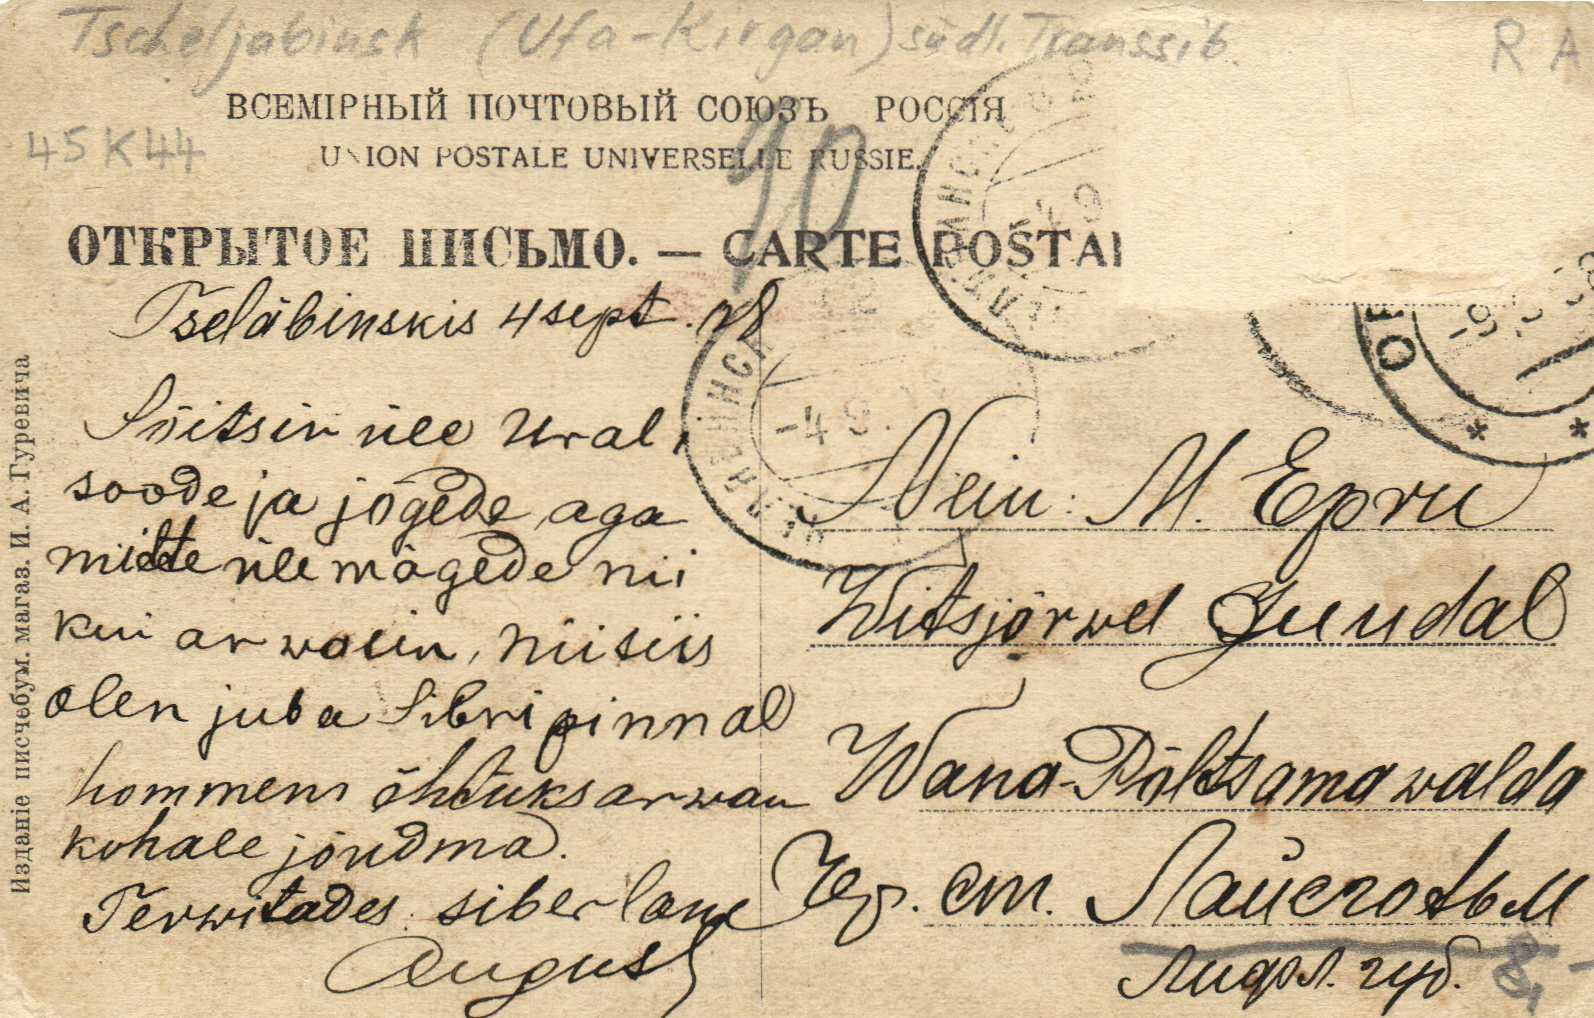 Tscheljabinsk (Ufa-Kirgan) südl. Transsib.
R A
45K44
ВСЕМІРНЫЙ ПОЧТОВЫЙ СОЮЗЪ РОССІЯ
UNION POSTALE UNIVERSELLE RUSSIE.
10
ОТКРЫТОЕ ПИСЬМО. — CARTE POSTAL
Tseläbinskis 4 sept.
Sõitsin üle Ural,
soode ja jõgede, aga
mitte üle mägede nii
kui arwasin, nüüd siis
olen juba Sibri pinnal
hommen õhtuks arwan
kohale jõudma.
Terwitades siberlane
August
Neiu: M. Epru
Witsjärwel Juudal
Wana-Põltsama walda
Чр. ст. Лайсгольм
Лифл. губ.
8,-
Изданіе писчебум. магаз. И. А. Гуревича
ЧЕЛЯБИНСК
-4 9.